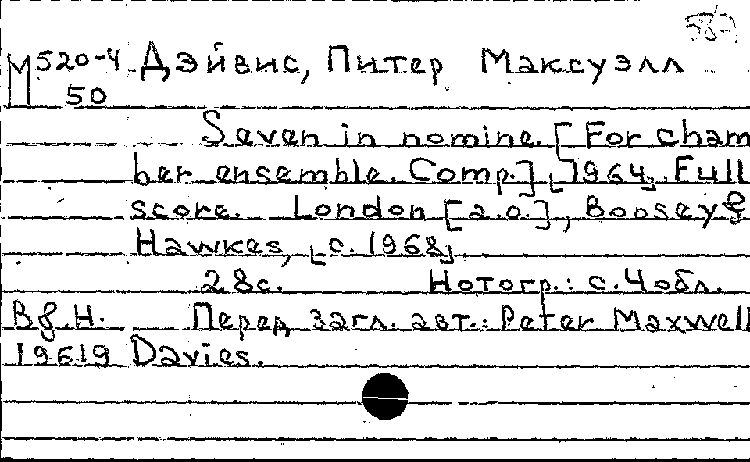 587
М 520-4 Дэйвис, Питер Максуэлл
50
Seven in nomine. [For cham
ber ensemble. Comp.] [1964]. Full
score. London [a.o.], Boosey &
Hawkes, [c. 1968].
28с. Нотогр.: с. 4 обл.
Вф.Н. Перед загл. авт.: Peter Maxwell
19619 Davies.